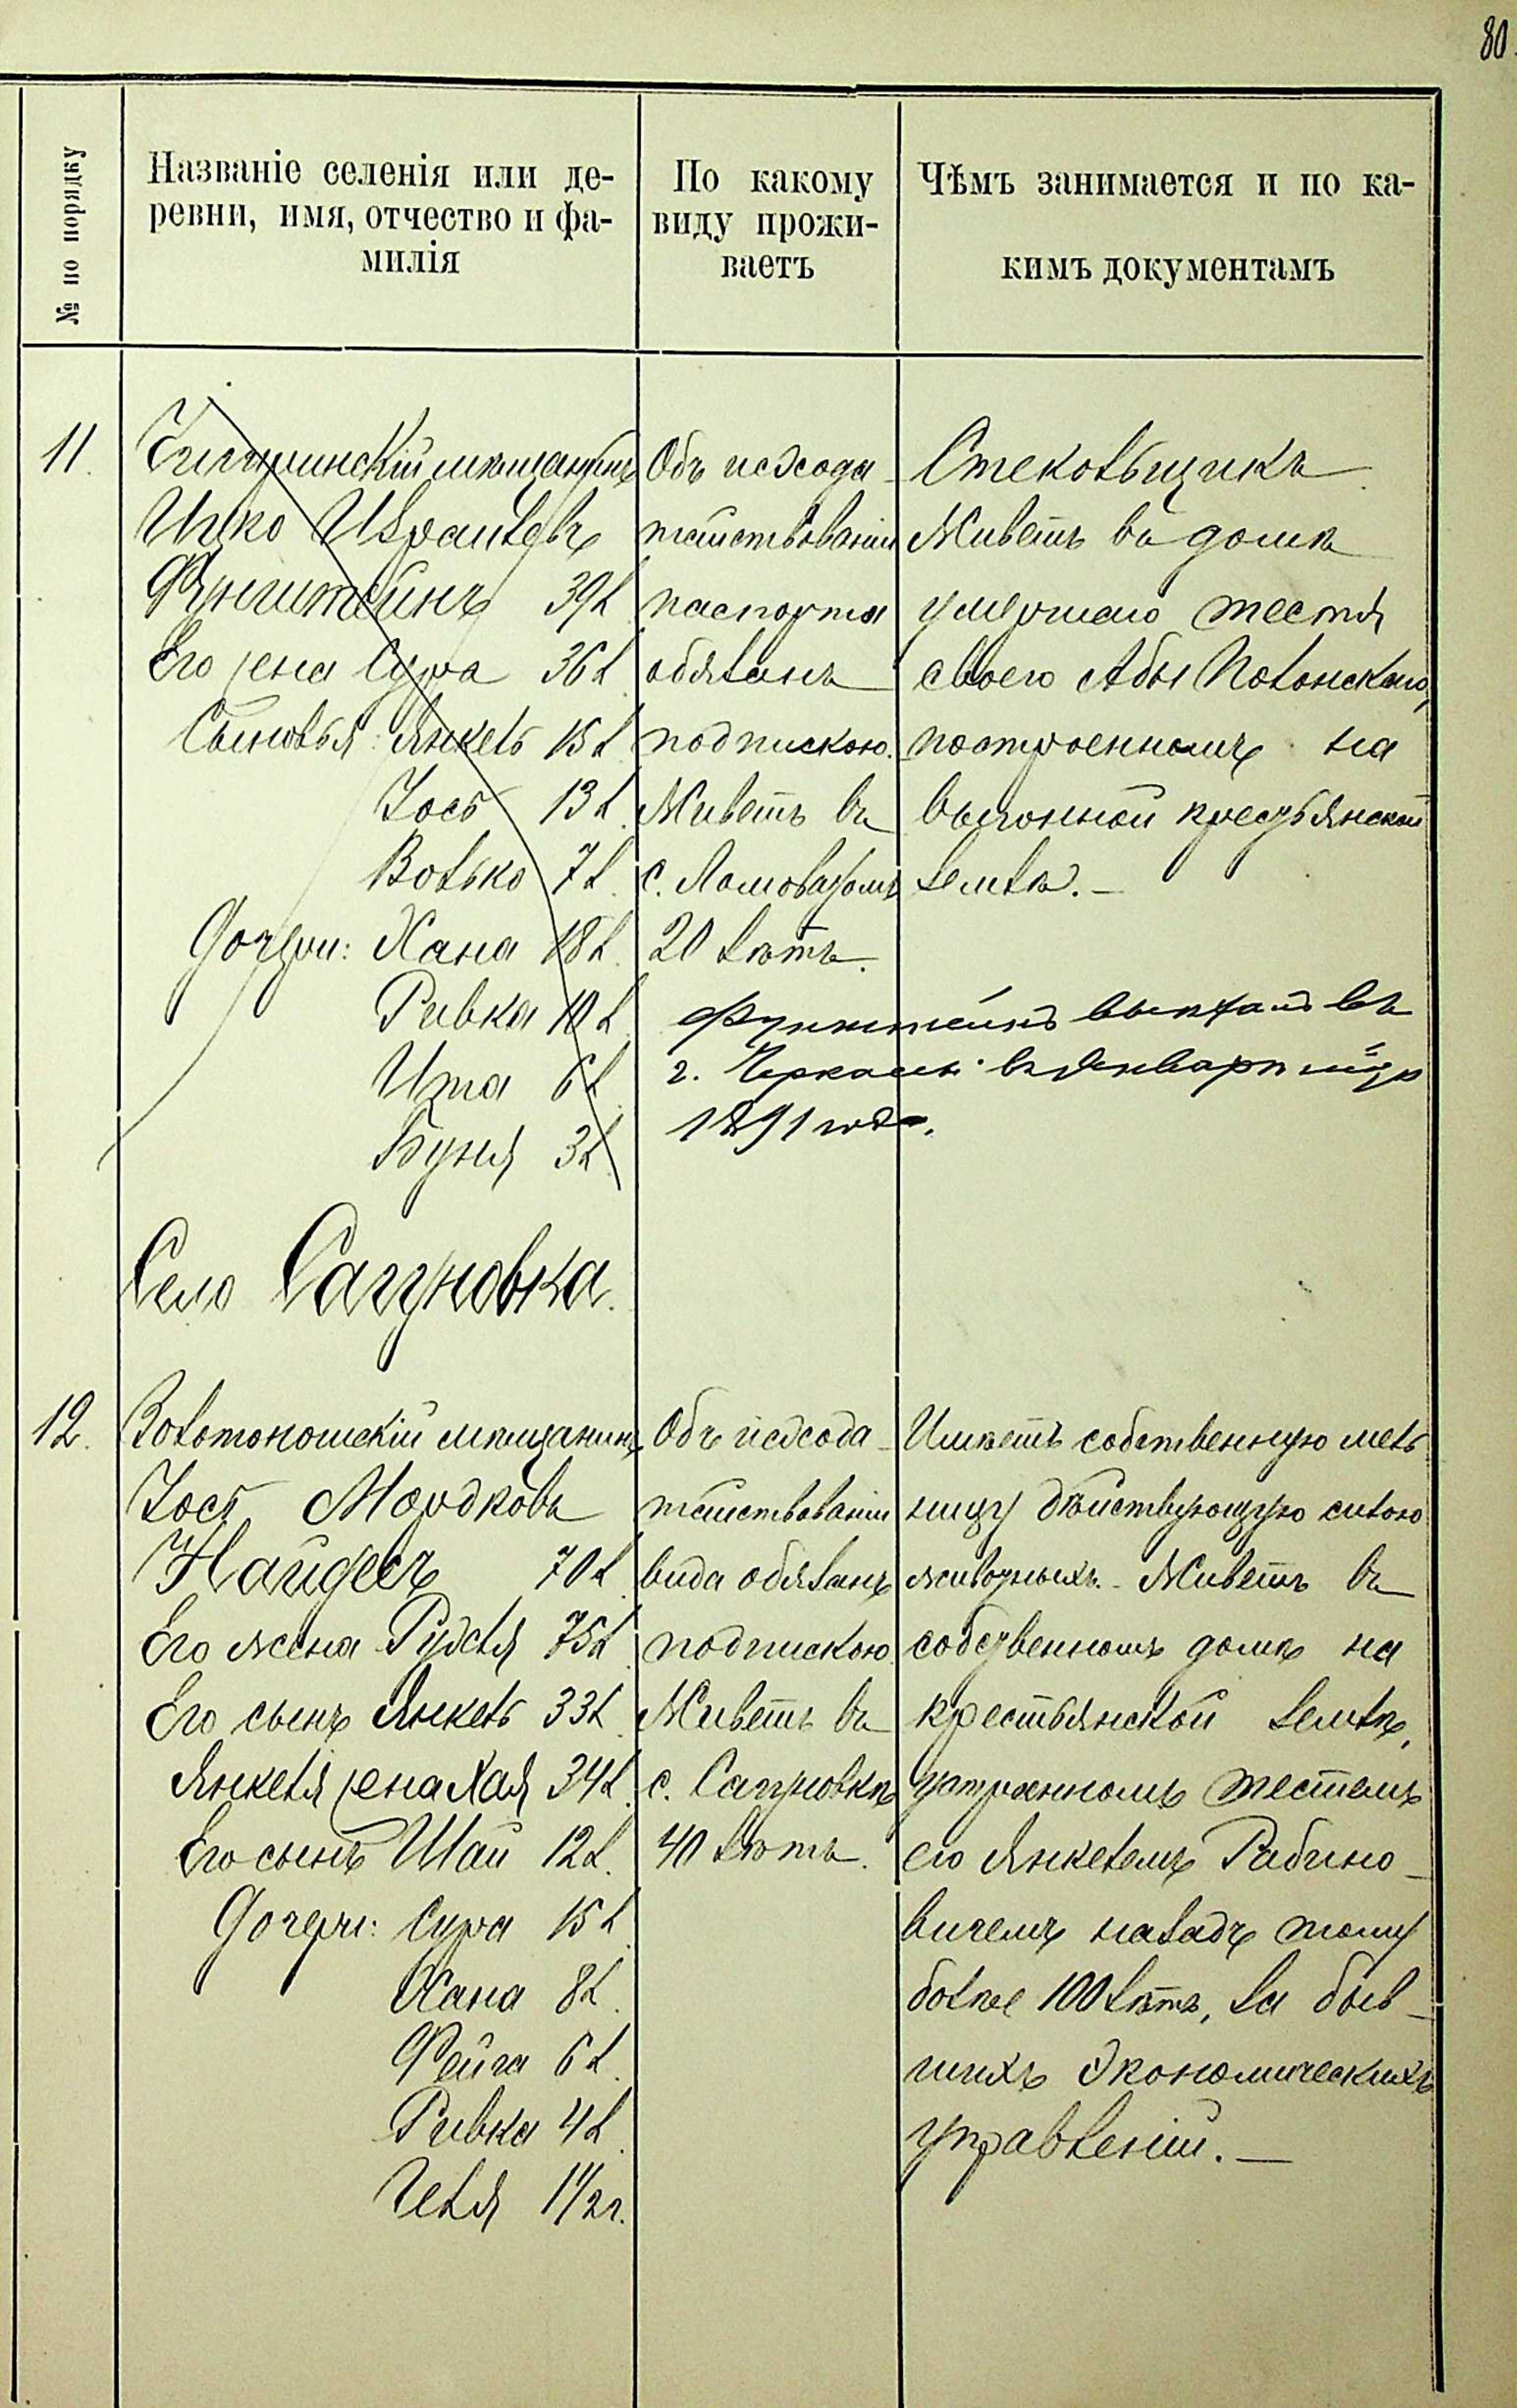 80.
№ по порядку
Названіе селенія или де-
ревни, имя, отчество и фа-
милія
По какому
виду прожи-
ваетъ
Чѣмъ занимается и по ка-
кимъ документамъ
11.
Чигиринскій мѣщанинъ
Ицко Израилевъ
Функштейнъ 39 л.
Его жена Сура 36 л.
Сыновья: Янкель 15 л.
Іось 13 л.
Волько 7 л.
Дочери: Хана 18 л.
Ривка 10 л.
Ита 6 л.
Буня 3 л.
Объ исхода-
тайствованіи
паспорта
обязанъ
подпискою.
Живетъ въ
с. Ломоватомъ
20 лѣтъ.
Стекольщикъ.
Живетъ въ домѣ
умершаго тестя
своего Абы Полонскаго,
построенномъ на
выгонной крестьянской
землѣ. —
Функштейнъ выѣхалъ въ
г. Черкасы въ Январѣ м-цѣ
1891 года.
Село Сагуновка.
12.
Золотоношскій мѣщанинъ
Іось Мордковъ
Найдесъ 70 л.
Его жена Рухля 75 л.
Его сынъ Янкель 33 л.
Янкеля жена Хая 34 л.
Его сынъ Шаи 12 л.
Дочери: Сура 15 л.
Хана 8 л.
Фейга 6 л.
Ривка 4 л.
Геля 1 1/2 г.
Объ исхода-
тайствованіи
вида обязанъ
подпискою.
Живетъ въ
с. Сагуновкѣ
40 лѣтъ.
Имѣетъ собственную мель
ницу дѣйствующую силою
животныхъ. Живетъ въ
собственномъ домѣ на
крестьянской землѣ,
устроенномъ тестемъ
его Янкелемъ Рабино-
вичемъ назадъ тому
болѣе 100 лѣтъ, за быв-
шихъ Экономическихъ
управленій. —